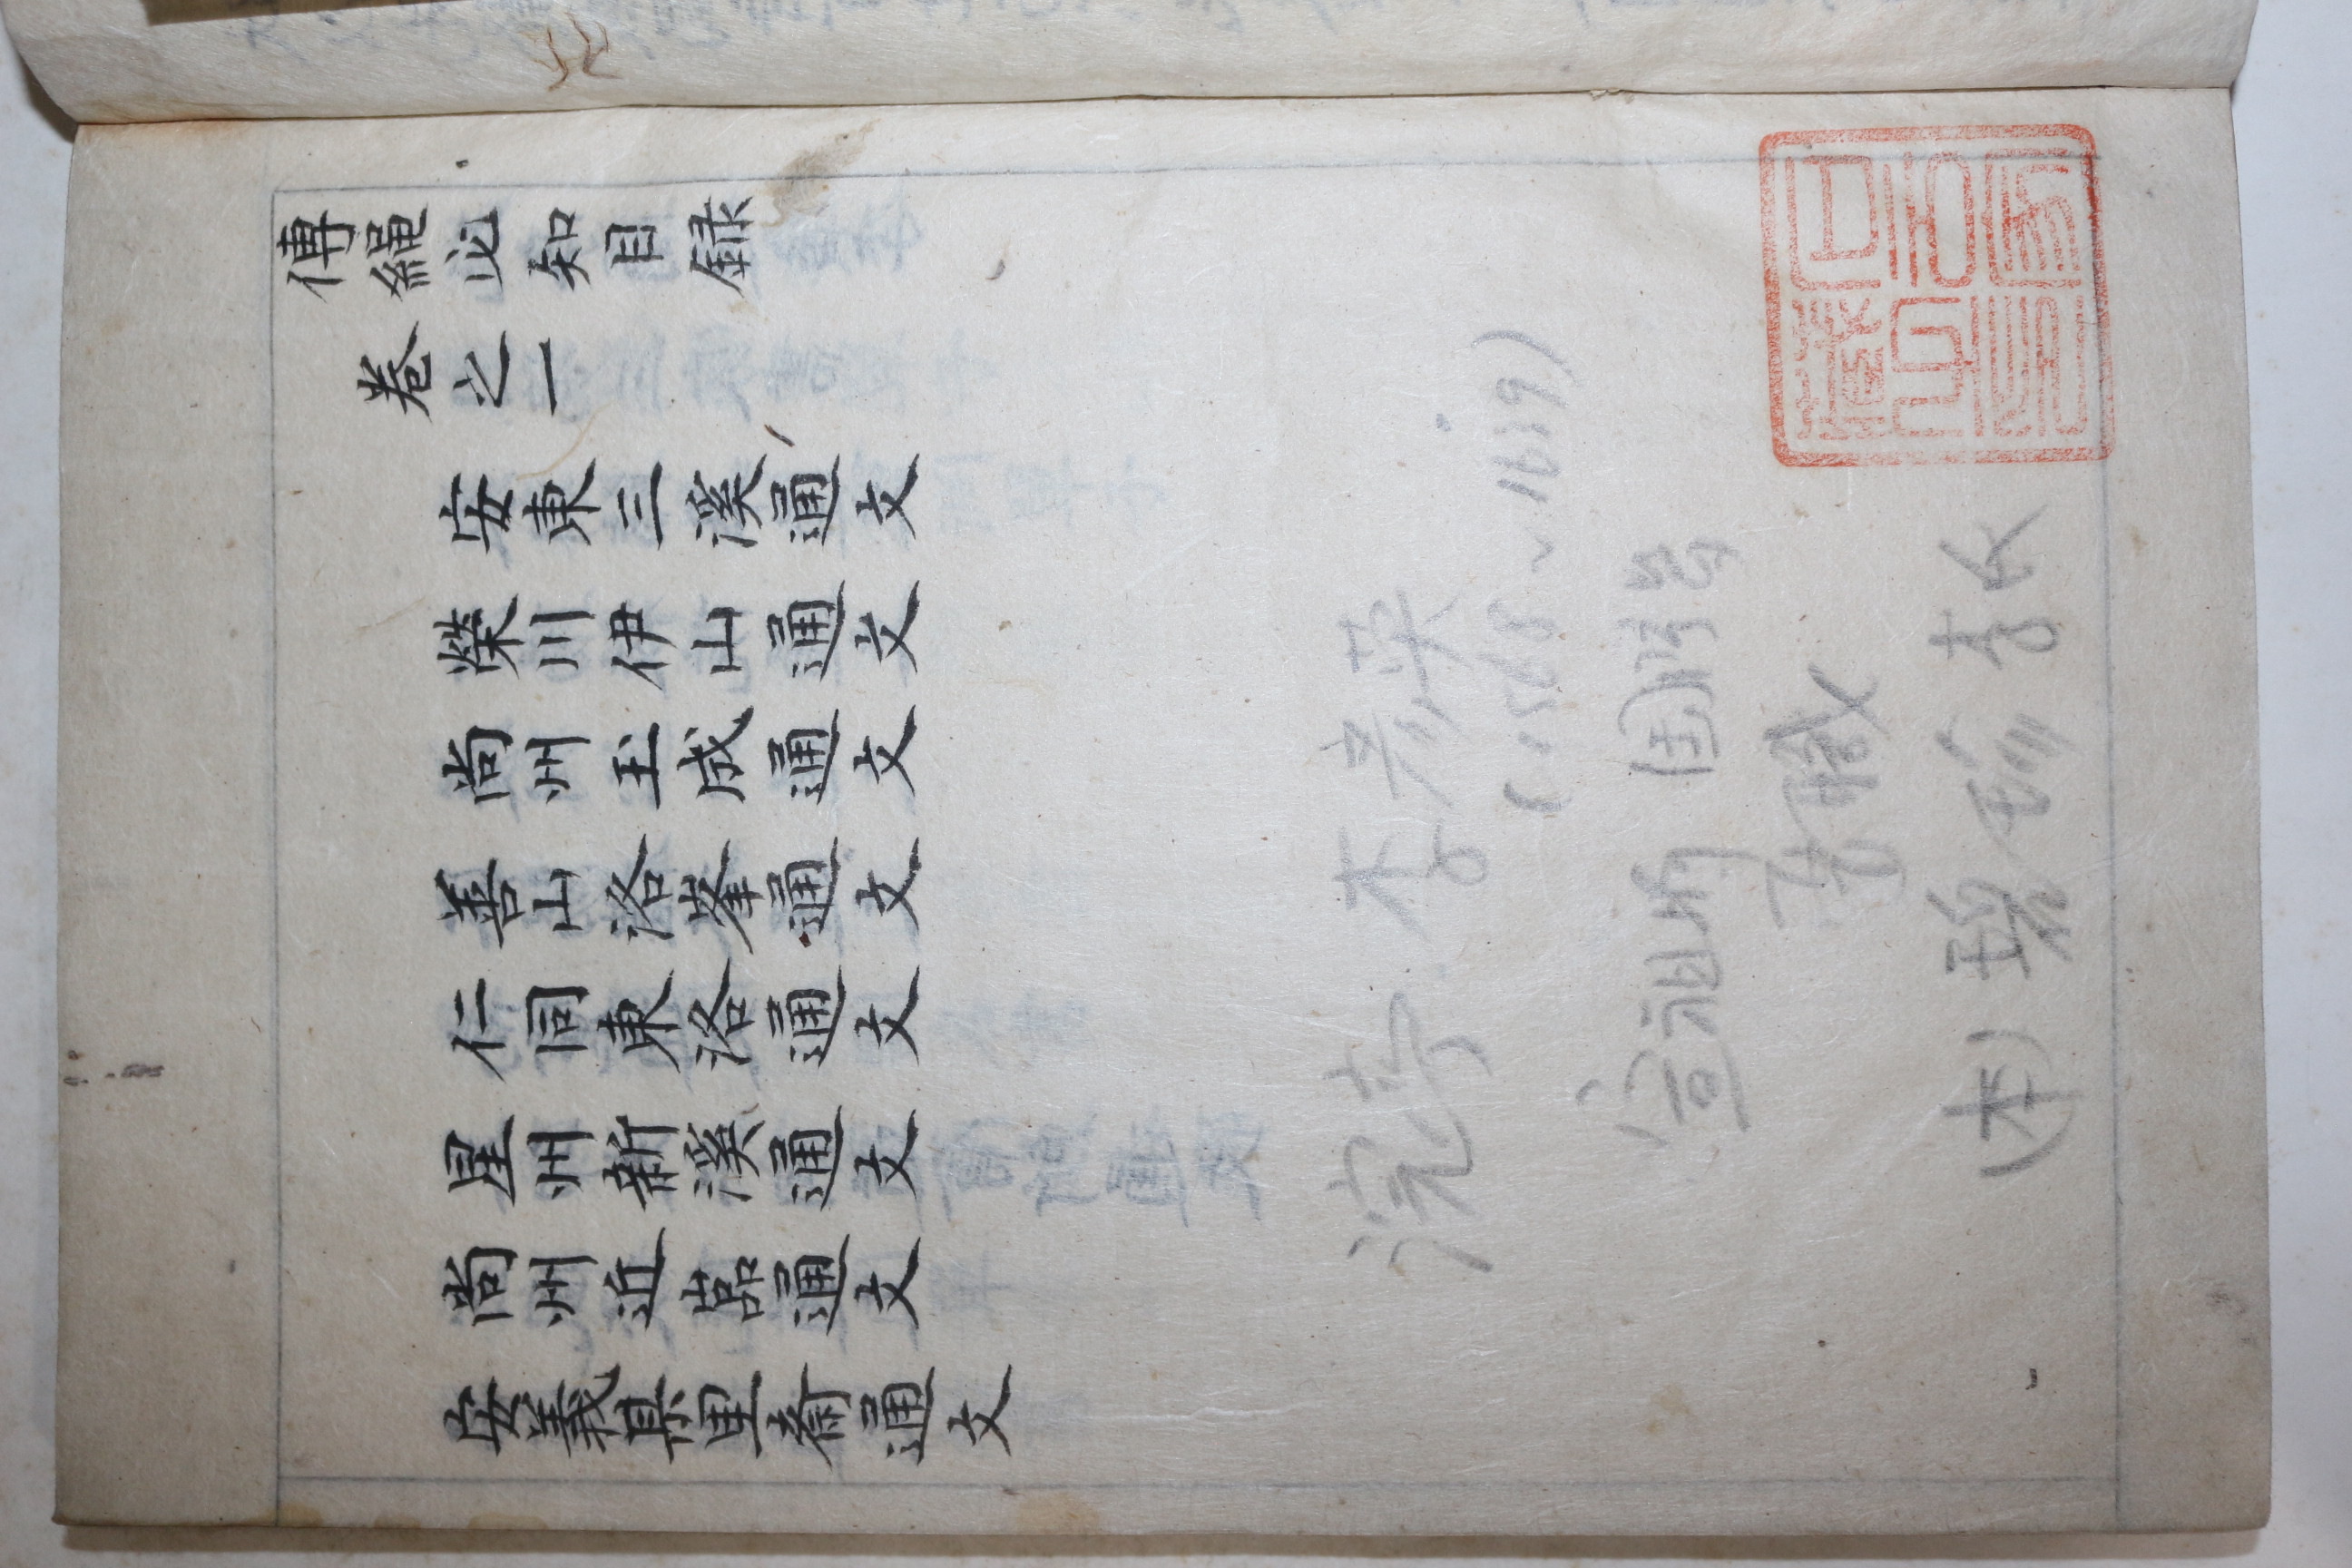 傳繩必知目録
卷之一
安東三溪通文
榮川伊山通文
尚州玉成通文
善山洛峯通文
仁同東洛通文
星州新溪通文
尚州近嵒通文
安義某里齋通文
浣亭 李彦英
(1568~1639)
宣祖時
(本) 碧珍李氏